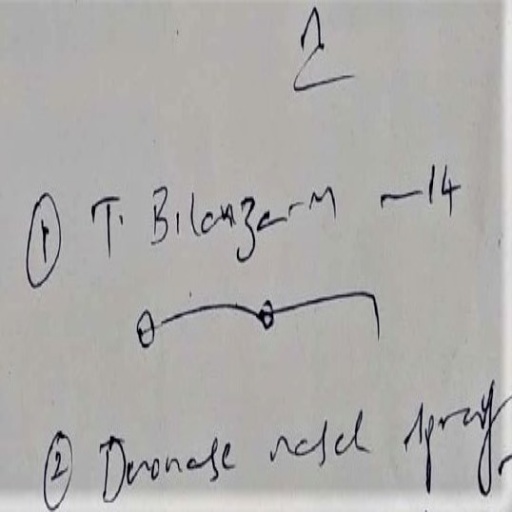 ① T. Bilanza-M — 14
0 — 0 — 1
② Duonase nasal spray